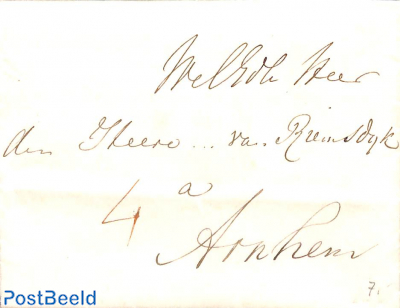 WelEdle Heer
den Heere ... van Riemsdyk
a
4
Arnhem
7.
PostBeeld